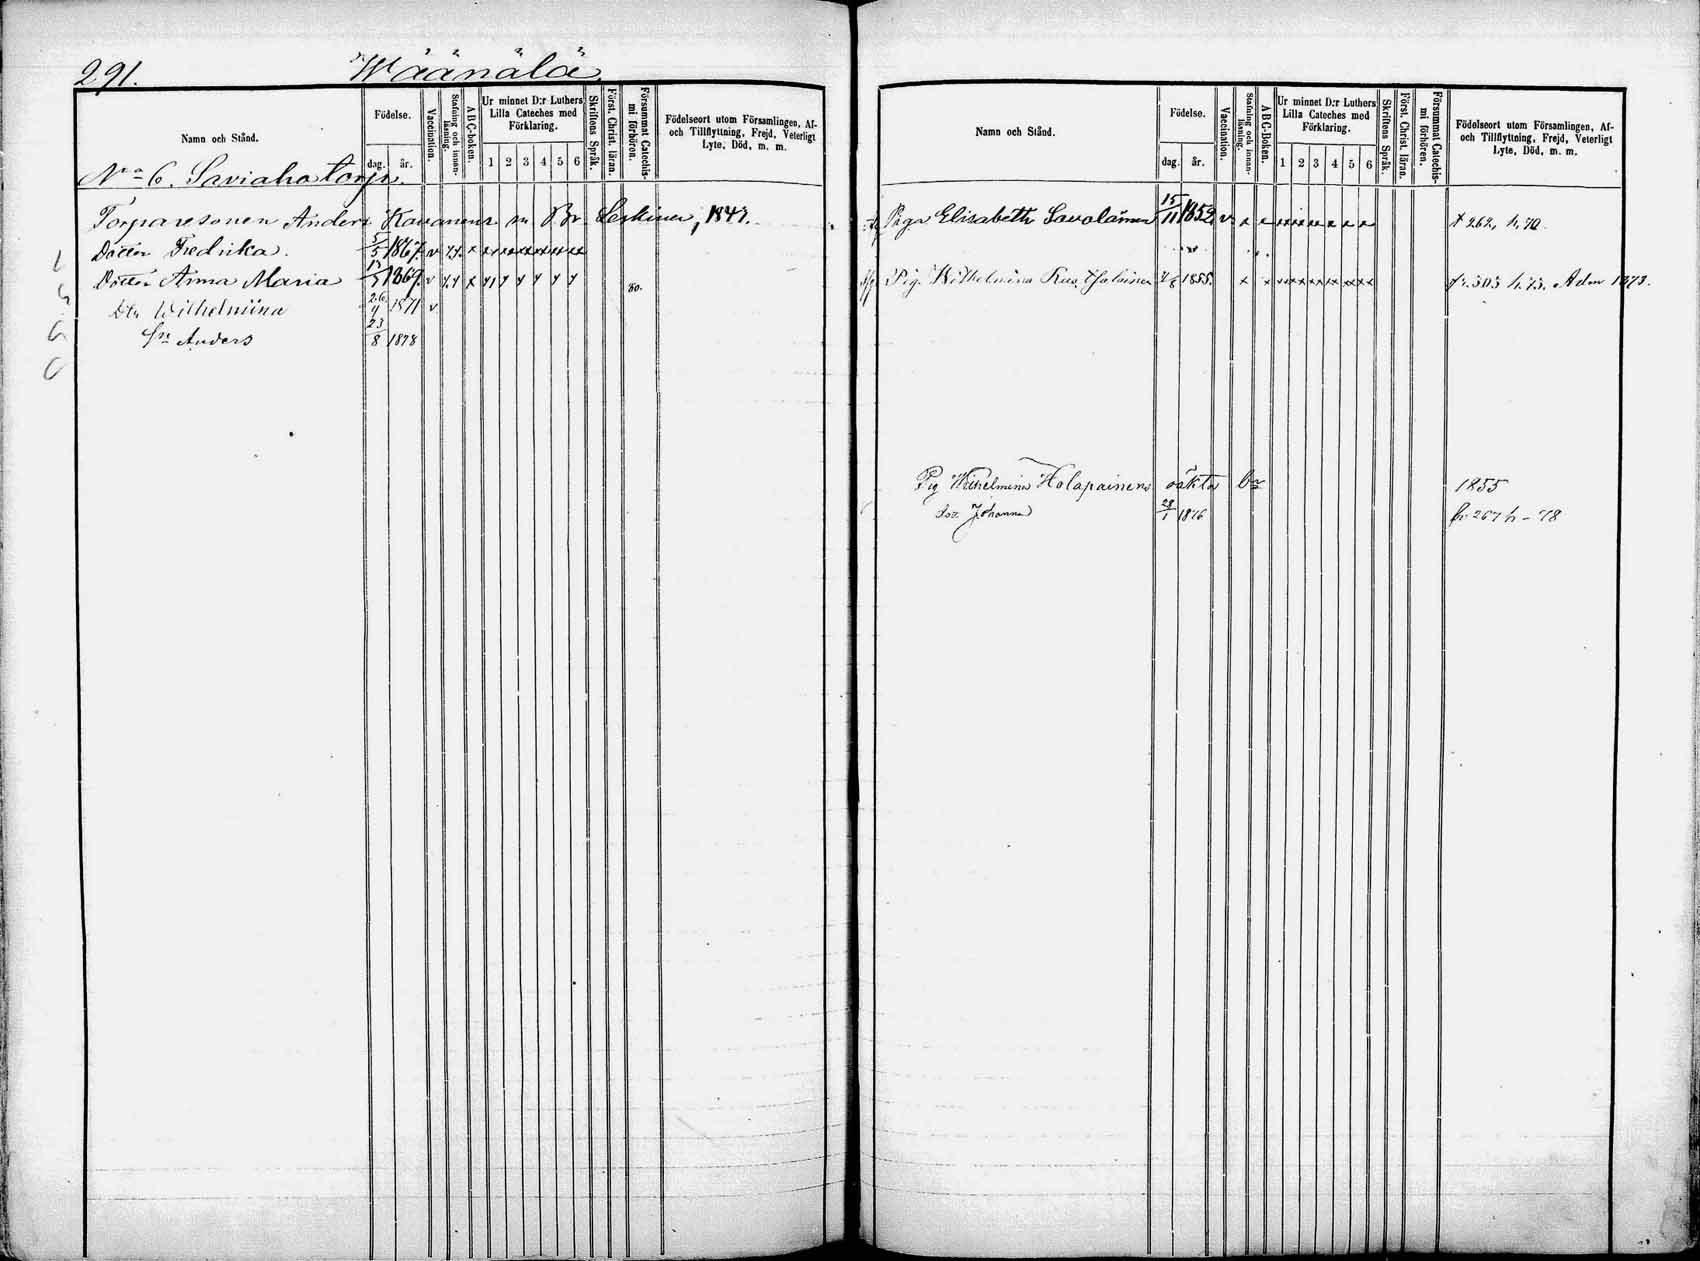 291. Wäänälä
Namn och Stånd.
Födelse.
dag. år.
Vaccination.
Stafning och innanläsning.
ABC-boken.
Ur minnet D:r Luthers Lilla Cateches med Förklaring.
1 2 3 4 5 6
Skriftens Språk.
Först. Christ. läran.
Försummat Catechismi förhören.
Födelseort utom Församlingen, Af- och Tillflyttning, Frejd, Veterligt Lyte, Död, m. m.
No 6. Saviaho torp.
Torparesonen Anders Kananens m. Br Leskinen, 1847.
Dotter Fredrika. 5/5 1867. v
Dotter Anna Maria 1869. v 80.
Dtr Wilhelmina 26/4 1871 v
Sn Anders 23/8 1878
Namn och Stånd.
Födelse.
dag. år.
Vaccination.
Stafning och innanläsning.
ABC-Boken.
Ur minnet D:r Luthers Lilla Cateches med Förklaring.
1 2 3 4 5 6
Skriftens Språk.
Först. Christ. läran.
Försummat Catechismi förhören.
Födelseort utom Församlingen, Af- och Tillflyttning, Frejd, Veterligt Lyte, Död, m. m.
Piga Elisabeth Savolainen 15/11 1852 v 262,
Pig. Wilhelmina 1855. 303 h. 73. Adm 1873.
Pig Wilhelmina Holapainens oäkta bn 1855
Johanna 28/1 1876 fr. 267 h - 78